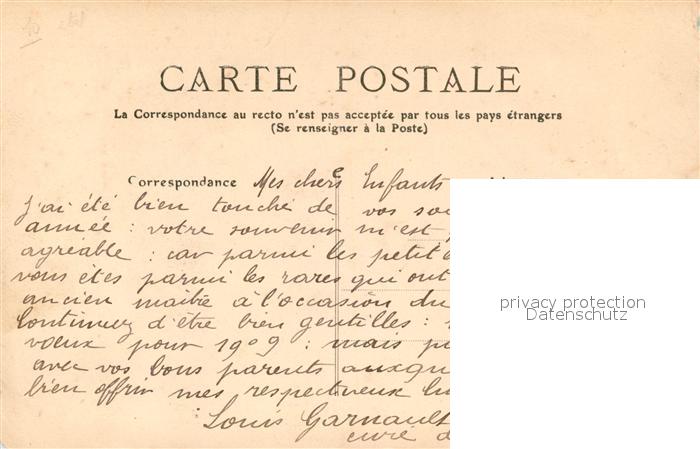 CARTE POSTALE
La Correspondance au recto n'est pas acceptée par tous les pays étrangers
(Se renseigner à la Poste)
Correspondance Mes chers Enfants
J'ai été bien touché de vos
année : votre souvenir m'est
agréable : car parmi les petit
vous êtes parmi les rares qui ont
ancien maître à l'occasion du
Continuez d'être bien gentilles :
vœux pour 1909 : mais
avec vos bons parents
bien offrir mes respectueux
Louis Garnault
curé
privacy protection
Datenschutz